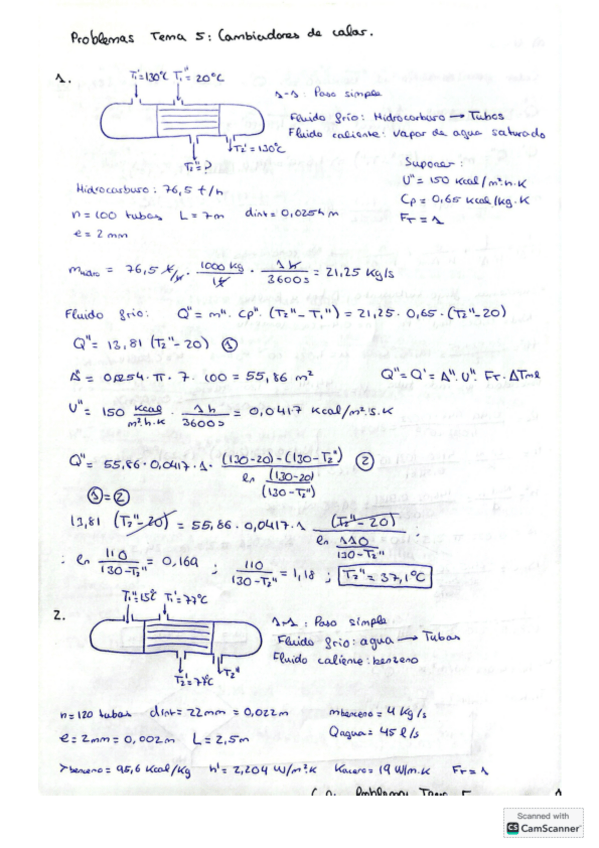 Problemas Tema 5: Cambiadores de calor.
1.
T₁'=130ºC T₁''=20ºC
1-1: Paso simple
Fluido frío: Hidrocarburo → Tubos
Fluido caliente: vapor de agua saturado
T₂'=130ºC
T₂''=?
Suponer:
U''=150 kcal/m²·h·K
Cp=0,65 kcal/kg·K
FT=1
Hidrocarburo: 76,5 t/h
n=100 tubos L=7m dint=0,0254m
e=2mm
= 76,5 t/h · 1000 kg/1t · 1h/3600s = 21,25 kg/s
Fluido frío: Q''=m''·Cp''·(T₂''-T₁'')=21,25·0,65·(T₂''-20)
Q''=13,81(T₂''-20) ①
=0,0254·π·7·100=55,86 m² Q''=Q'=A''·U''·FT·ΔTml
U''=150 kcal/m²·h·K · 1h/3600s = 0,0417 kcal/m²·s·K
Q''=55,86·0,0417·1·(130-20)-(130-T₂'')/ln (130-20)/(130-T₂'') ②
①=②
13,81 (T₂''-20) = 55,86·0,0417·1 (T₂''-20)/ln 110/130-T₂''
: ln 110/130-T₂'' = 0,169 ; 110/130-T₂'' = 1,18 ; T₂''=37,1ºC
2.
T₁''=15ºC T₁'=77ºC
1-1: Paso simple
Fluido frío: agua → Tubos
Fluido caliente: benceno
T₂'=77ºC T₂''
n=120 tubos dint=22mm=0,022m mbenceno=4 kg/s
e=2mm=0,002m L=2,5m Qagua=45 l/s
λbenceno=95,6 kcal/kg h'=2,204 W/m²·K Kacero=19 W/m·K FT=1
Scanned with
CS CamScanner